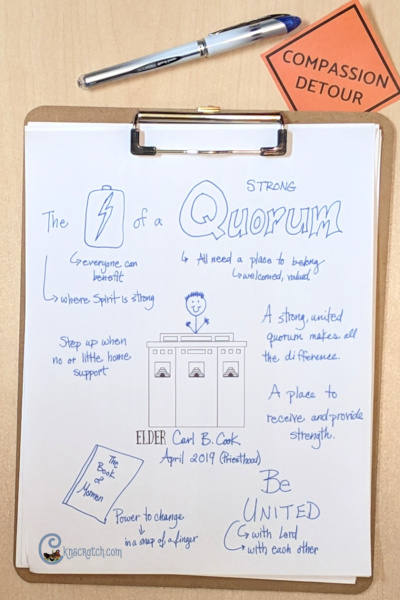 COMPASSION
DETOUR
STRONG
The of a QUORUM
everyone can
benefit
where Spirit is strong
All need a place to belong
welcomed, valued
Step up when
no or little home
support
A strong, united
quorum makes all
the difference.
A place to
receive and provide
strength.
ELDER Carl B. Cook
April 2019 (Priesthood)
The
Book
of
Mormon
Power to change
in a snap of a finger
Be
UNITED
with Lord
with each other
cknscratch.com